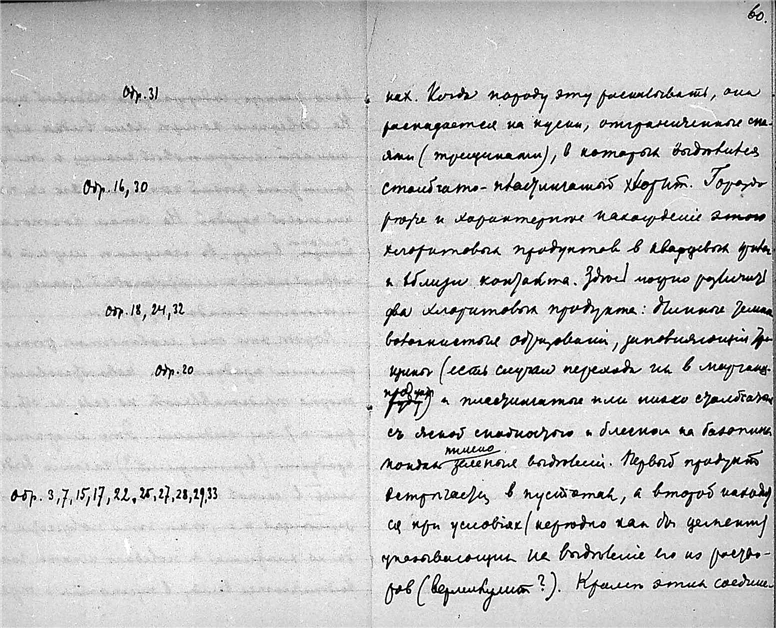 60.
Обр. 31
Обр. 16, 30
Обр. 18, 24, 32
Обр. 20
Обр. 3, 7, 15, 17, 22, 25, 27, 28, 29, 33
нах. Когда породу эту раскалывать, она
распадается на куски, отграниченные
(трещинами), в которых выделился
столбчато-пластинчатый хлорит. Гораздо
и характерное нахождение этого
хлоритовых продуктов в кварцевых
и вблизи контакта. Здесь можно различить
два хлоритовых продукта:
волокнистые образования, заполняющие
(есть случаи перехода их в
продукт) и пластинчатые или
с ясной спайностью и блеском на
темно
зеленые выделения. Первый продукт
встречается в пустотах, а второй находит
ся при условиях (нередко как бы цемент)
указывающих на выделение его из раство-
ров (вермикулит?). Кроме этих соедине-